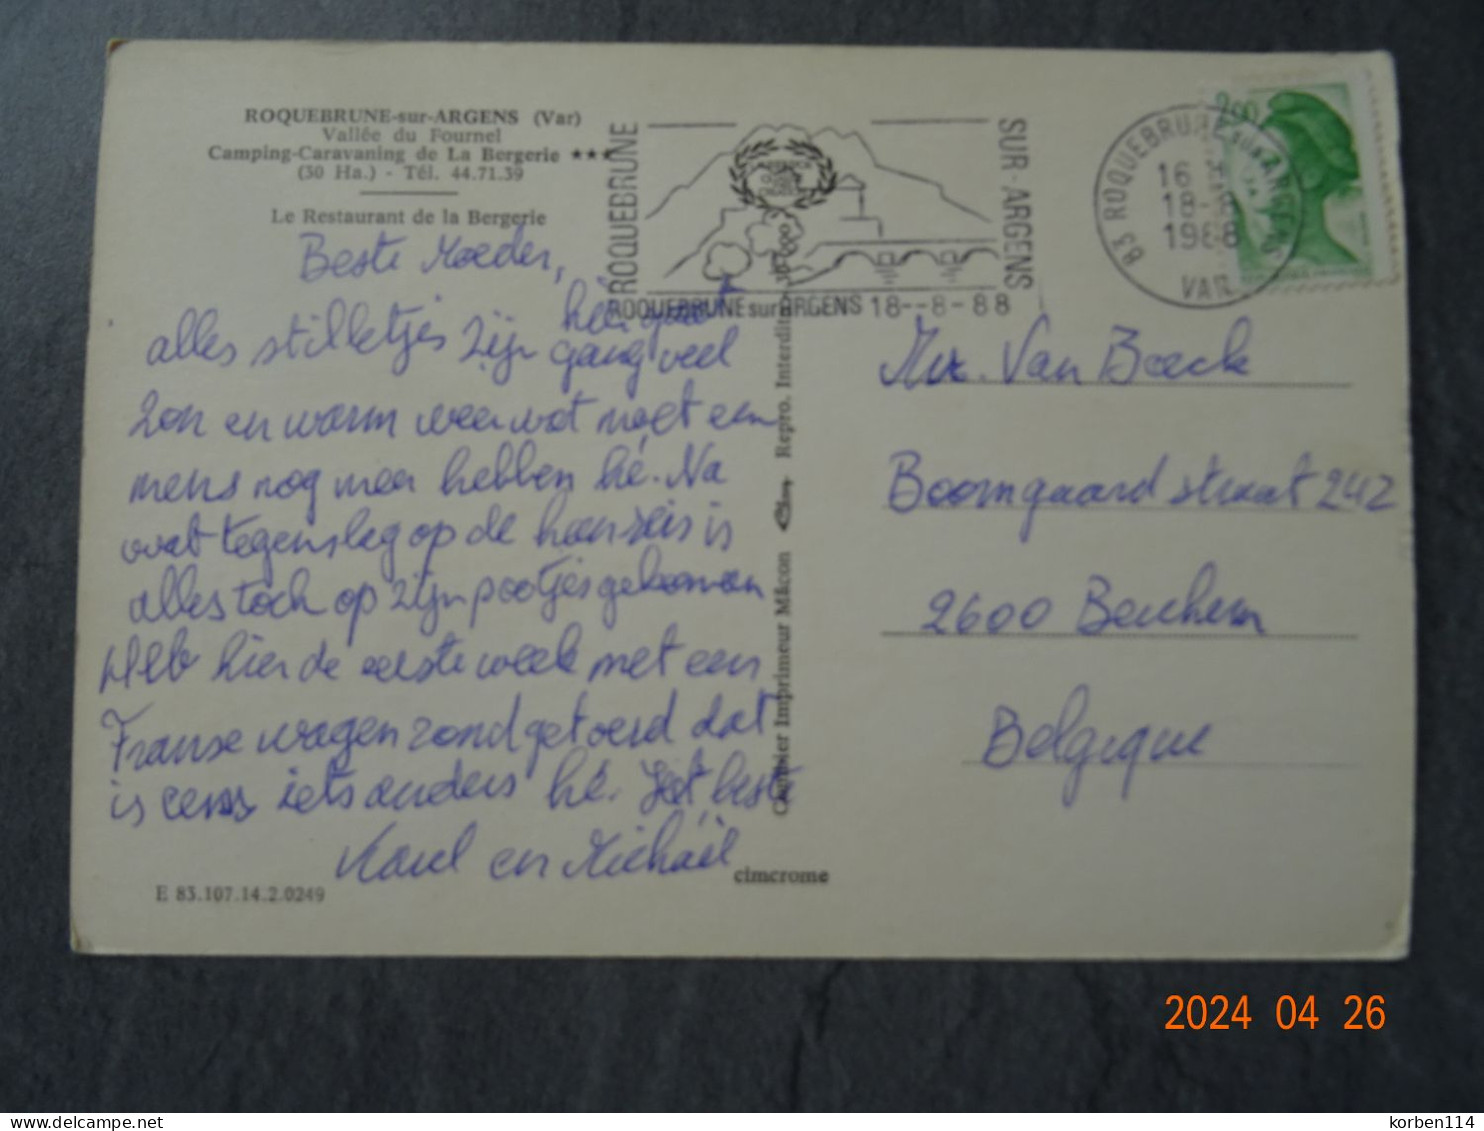 ROQUEBRUNE-sur-ARGENS (Var)
Vallée du Fournel
Camping-Caravaning de La Bergerie ★★★
(30 Ha.) - Tél. 44.71.39
Le Restaurant de la Bergerie
Beste Moeder,
alles stilletjes zijn gang hier gaat veel
zon en warm weer wat moet een
mens nog meer hebben hé. Na
wat tegenslag op de heenreis is
alles toch op zijn pootjes gekomen
Heb hier de eerste week met een
Franse wagen rondgetoerd dat
is eens iets anders hé. Het best
Karel en Michaël
E 83.107.14.2.0249
cimcrome
Combier Imprimeur Mâcon
Repro. Interdite
ROQUEBRUNE
SUR-ARGENS
ROQUEBRUNE sur ARGENS 18--8-88
83 ROQUEBRUNE SUR ARGENS
16
18-8
1988
VAR
2,00
Mr. Van Boeck
Boomgaardstraat 242
2600 Berchem
Belgique
2024 04 26
korben114